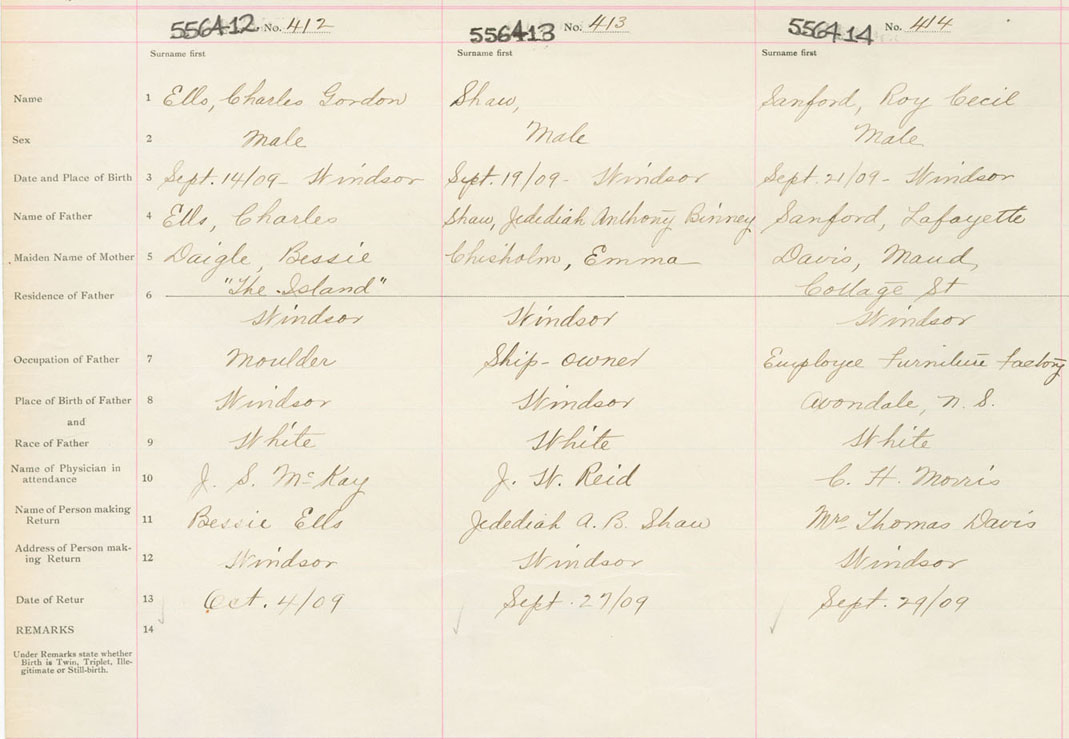 556412 No. 412 556413 No. 413 556414 No. 414
Surname first Surname first Surname first
Name 1 Ells, Charles Gordon Shaw, Sanford, Roy Cecil
Sex 2 Male Male Male
Date and Place of Birth 3 Sept. 14/09 - Windsor Sept. 19/09 - Windsor Sept. 21/09 - Windsor
Name of Father 4 Ells, Charles Shaw, Jedediah Anthony Binney Sanford, Lafayette
Maiden Name of Mother 5 Daigle, Bessie Chisholm, Emma Davis, Maud
"The Island" Collage St
Residence of Father 6
Windsor Windsor Windsor
Occupation of Father 7 Moulder Ship-owner Employee Furniture Factory
Place of Birth of Father 8 Windsor Windsor Avondale, N. S.
and
Race of Father 9 White White White
Name of Physician in
attendance 10 J. S. McKay J. W. Reid C. H. Morris
Name of Person making
Return 11 Bessie Ells Jedediah A. B. Shaw Mrs Thomas Davis
Address of Person mak-
ing Return 12 Windsor Windsor Windsor
Date of Retur 13 Oct. 4/09 Sept. 27/09 Sept. 29/09
REMARKS 14
Under Remarks state whether
Birth is Twin, Triplet, Ille-
gitimate or Still-birth.